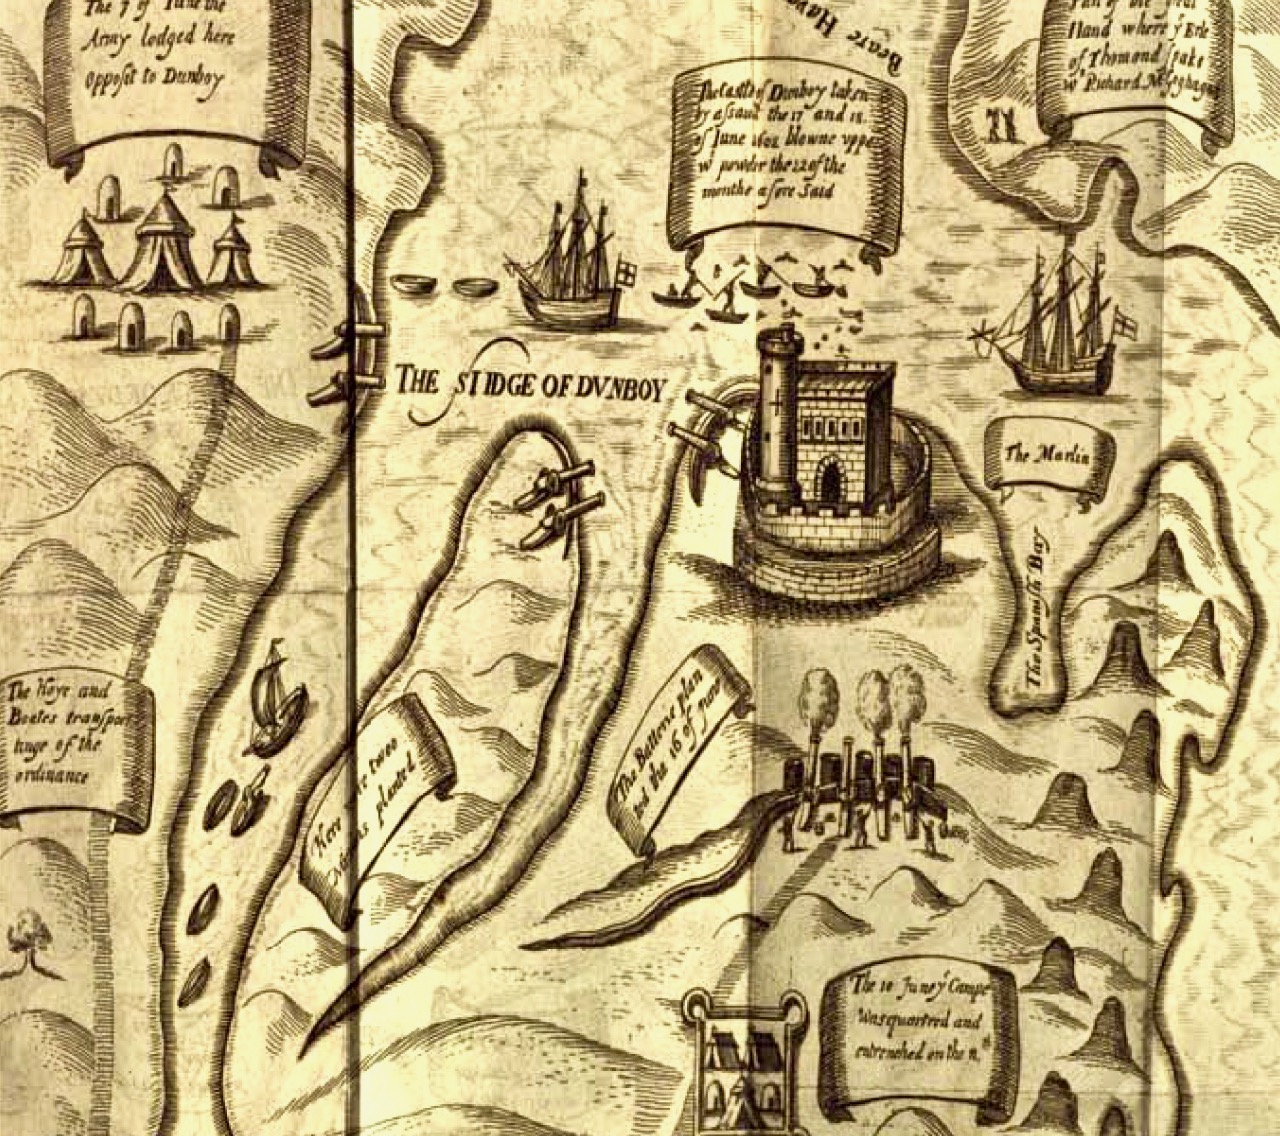 The 7 of June the
Army lodged here
opposit to Dunboy
Beare Hav
Part of the great
Iland where yͤ Erle
of Thomond spake
wᵗ Richard
The Castle of Dunboy taken
by assault the 17 and 18
of June 1602 blowne uppe
wᵗ powder the 22 of the
monthe afore said
THE SIIDGE OF DVNBOY
The Marlin
The Spanish Bay
The Hoye and
Boates transpor
tinge of the
ordinance
Here were twoo
planted
The Batterie plan
ted the 16 of June
The 10 June yͤ Campe
was quartred and
entrenched on the 11ᵗʰ